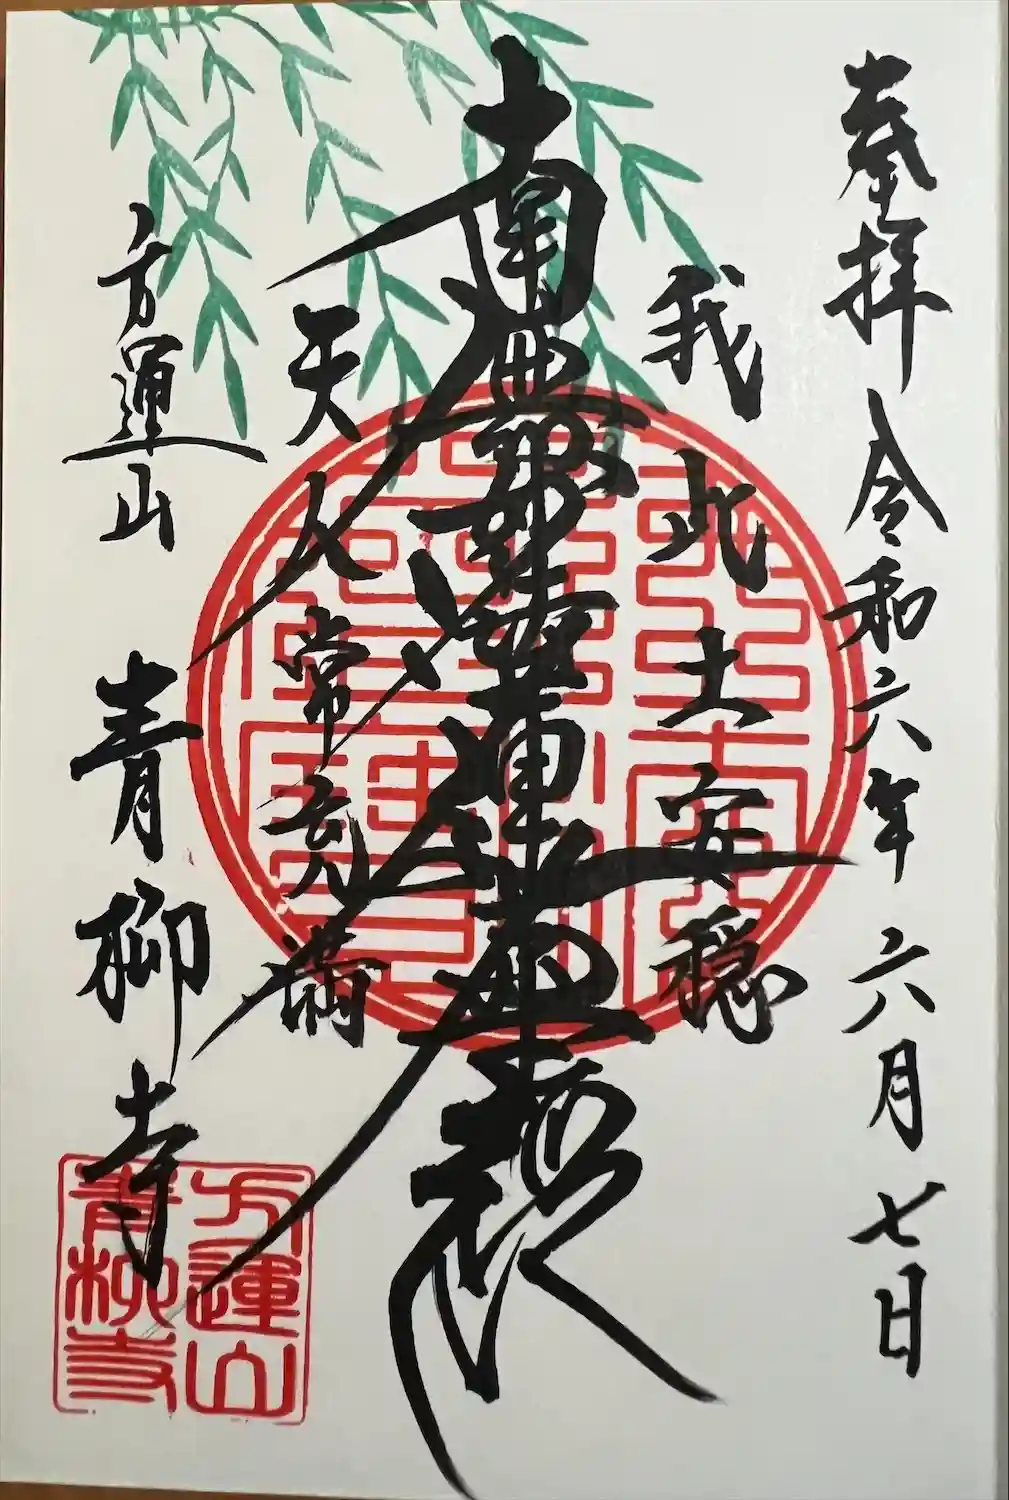 奉拝 令和六年六月七日
我此土安穏
南無妙法蓮華経
天人常充満
方運山 青柳寺
方運山
青柳寺